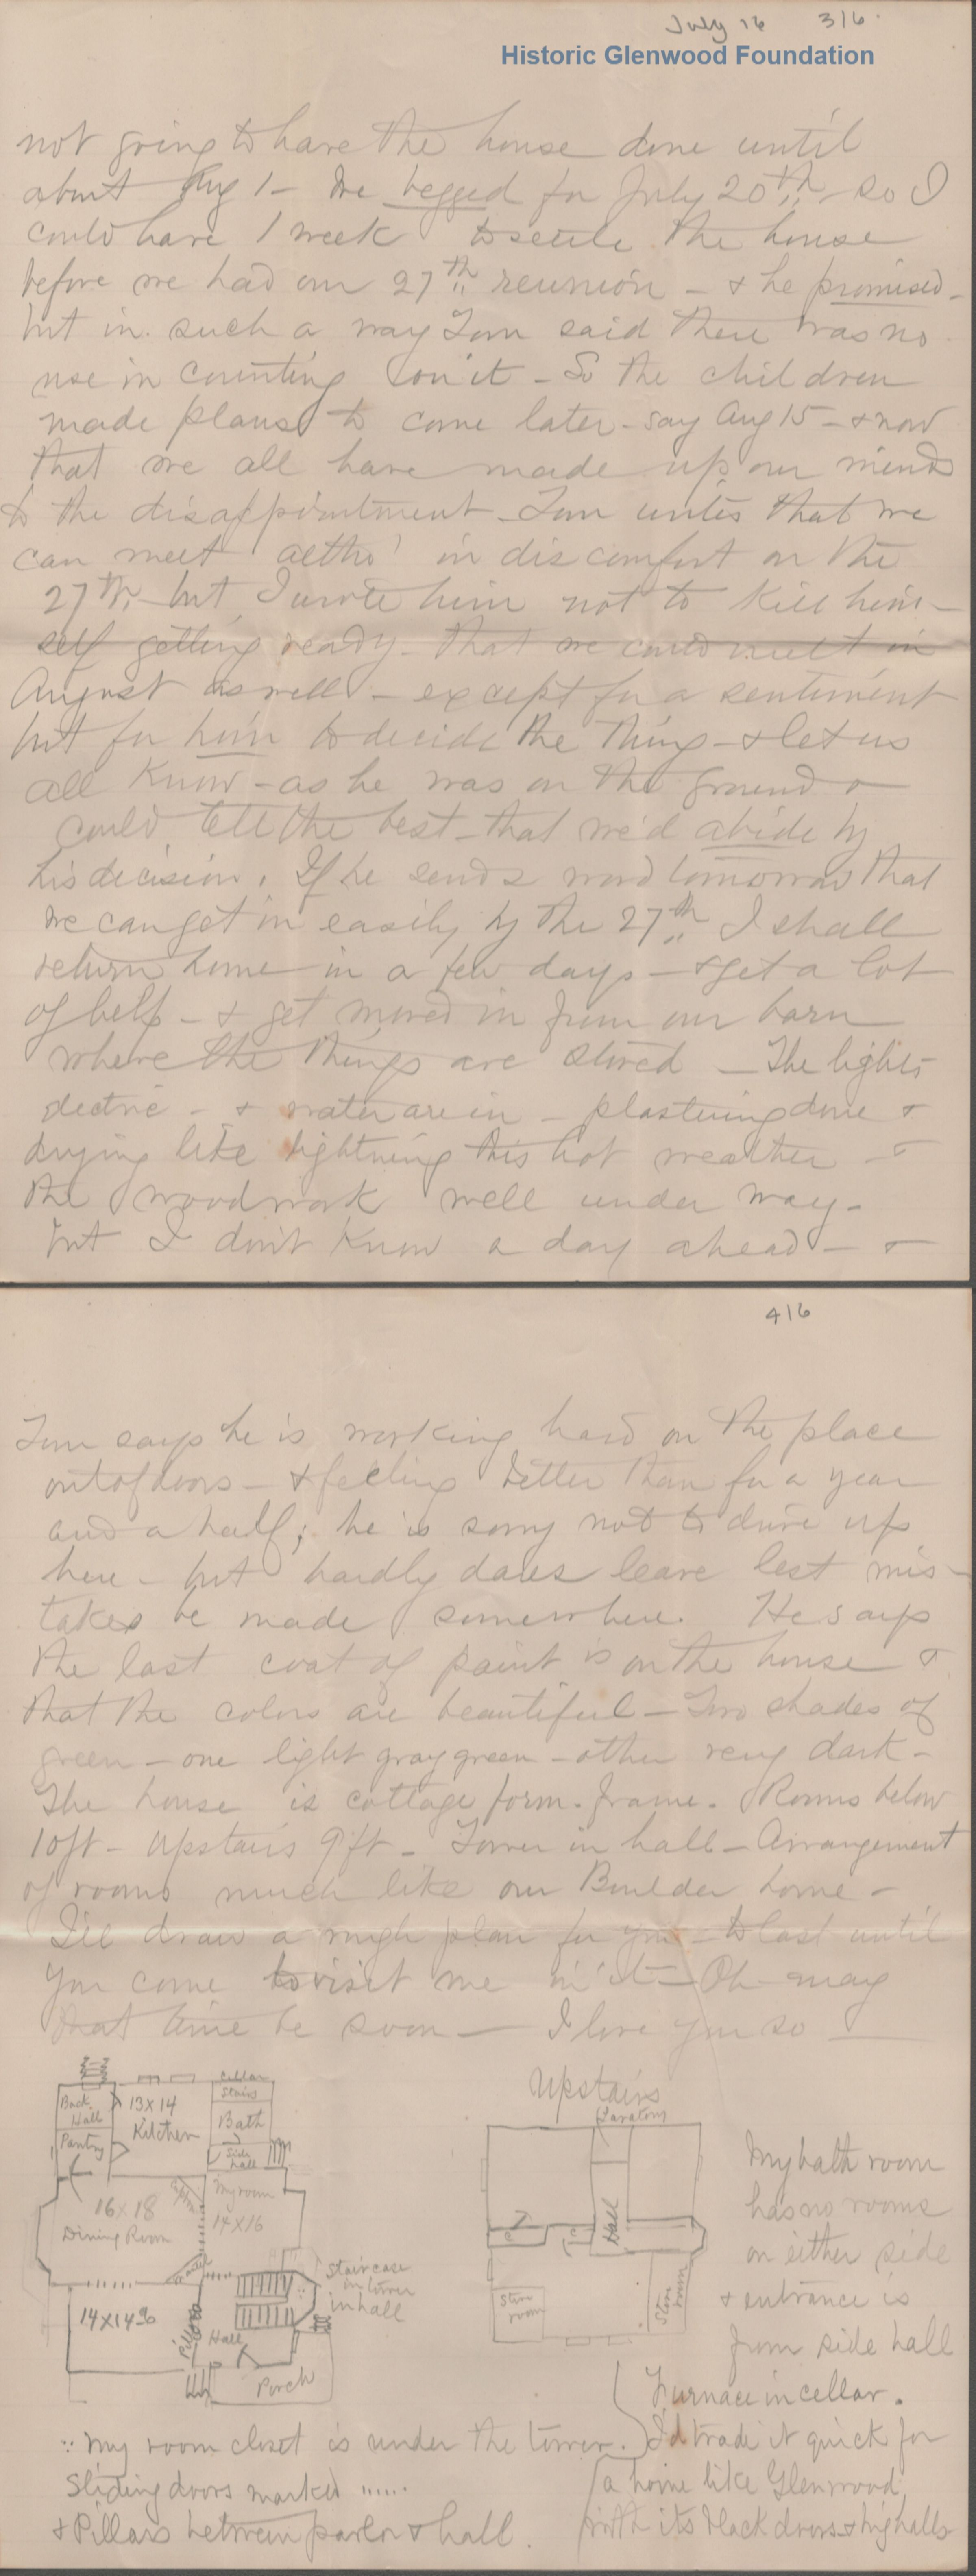 July 16 3/6.
Historic Glenwood Foundation
not going to have the house done until
about Aug 1 - We begged for July 20th - so I
could have 1 week to settle the house
before we had our 27th reunion - & he promised -
but in such a way Tom said there was no
use in counting on it - So the children
made plans to come later - say Aug 15 - & now
that we all have made up our minds
to the disappointment - Tom writes that we
can meet altho' in discomfort on the
27th, - but I wrote him not to kill him-
self getting ready - that we could meet in
August as well - except for a sentiment
but for him to decide the thing - & let us
all know - as he was on the ground &
could tell the best - that we'd abide by
his decision. If he sends word tomorrow that
we can get in easily by the 27th I shall
return home in a few days - & get a lot
of help - & get moved in from our barn
where the things are stored - The lights
electric - & water are in - plastering done &
drying like lightning this hot weather - &
the woodwork well under way -
but I don't know a day ahead - &
4/6
Tom says he is working hard on the place
out of doors - & feeling better than for a year
and a half; he is sorry not to drive up
here - but hardly dares leave lest mis-
takes be made somewhere. He says
the last coat of paint is on the house &
that the colors are beautiful - Two shades of
green - one light gray green - other very dark -
The house is cottage form - frame. Rooms below
10ft - Upstairs 9ft - Tower in hall - Arrangement
of rooms much like our Boulder home -
I'll draw a rough plan for you - to last until
you come to visit me in it - Oh may
that time be soon - I love you so -
Cellar
Stairs
Back
Hall
13X14
Kitchen
Bath
Pantry
Side
hall
16X18
Dining Room
My room
14X16
Staircase
in tower
in hall
14X14
Pillars
Hall
Porch
Upstairs
Hall
Store
room
Store
room
My bath room
has no rooms
on either side
& entrance is
from side hall
Furnace in cellar.
My room closet is under the tower.
Sliding doors marked ......
& Pillars between parlor & hall.
I'd trade it quick for
a home like Glenwood
with its black doors & big halls